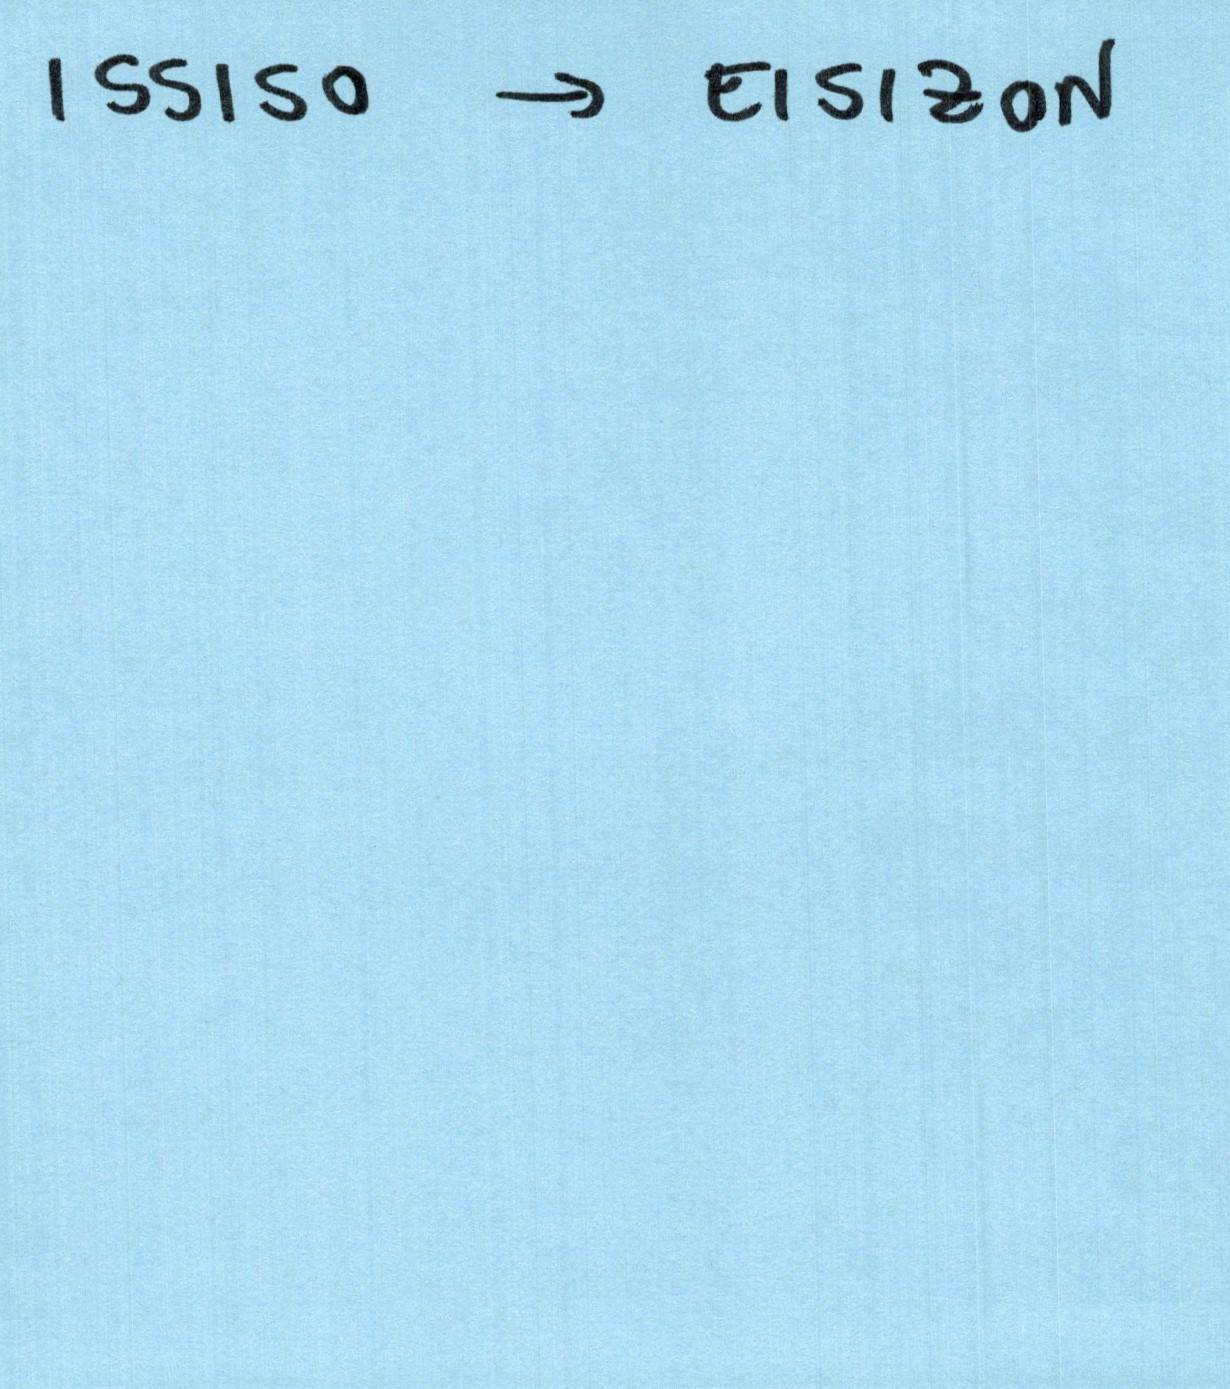 ISSISO → EISIZON